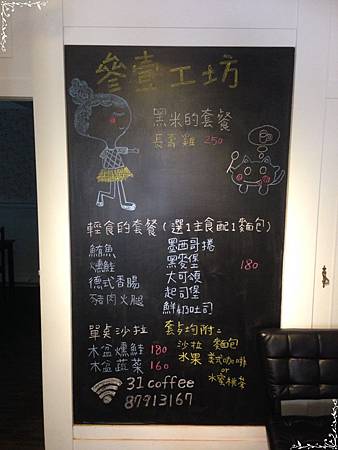 參壹工坊
黑米的套餐
長壽雞 250
輕食的套餐(選1主食配1麵包)
鮪魚
燻鮭
德式香腸
豬肉火腿
墨西哥捲
黑麥堡
大可頌 180
起司堡
鮮奶吐司
單桌沙拉
木盆燻鮭 180
木盆蔬菜 160
套占均附:
沙拉 麵包
水果 美式咖啡
or
水蜜桃茶
31 coffee
87913167